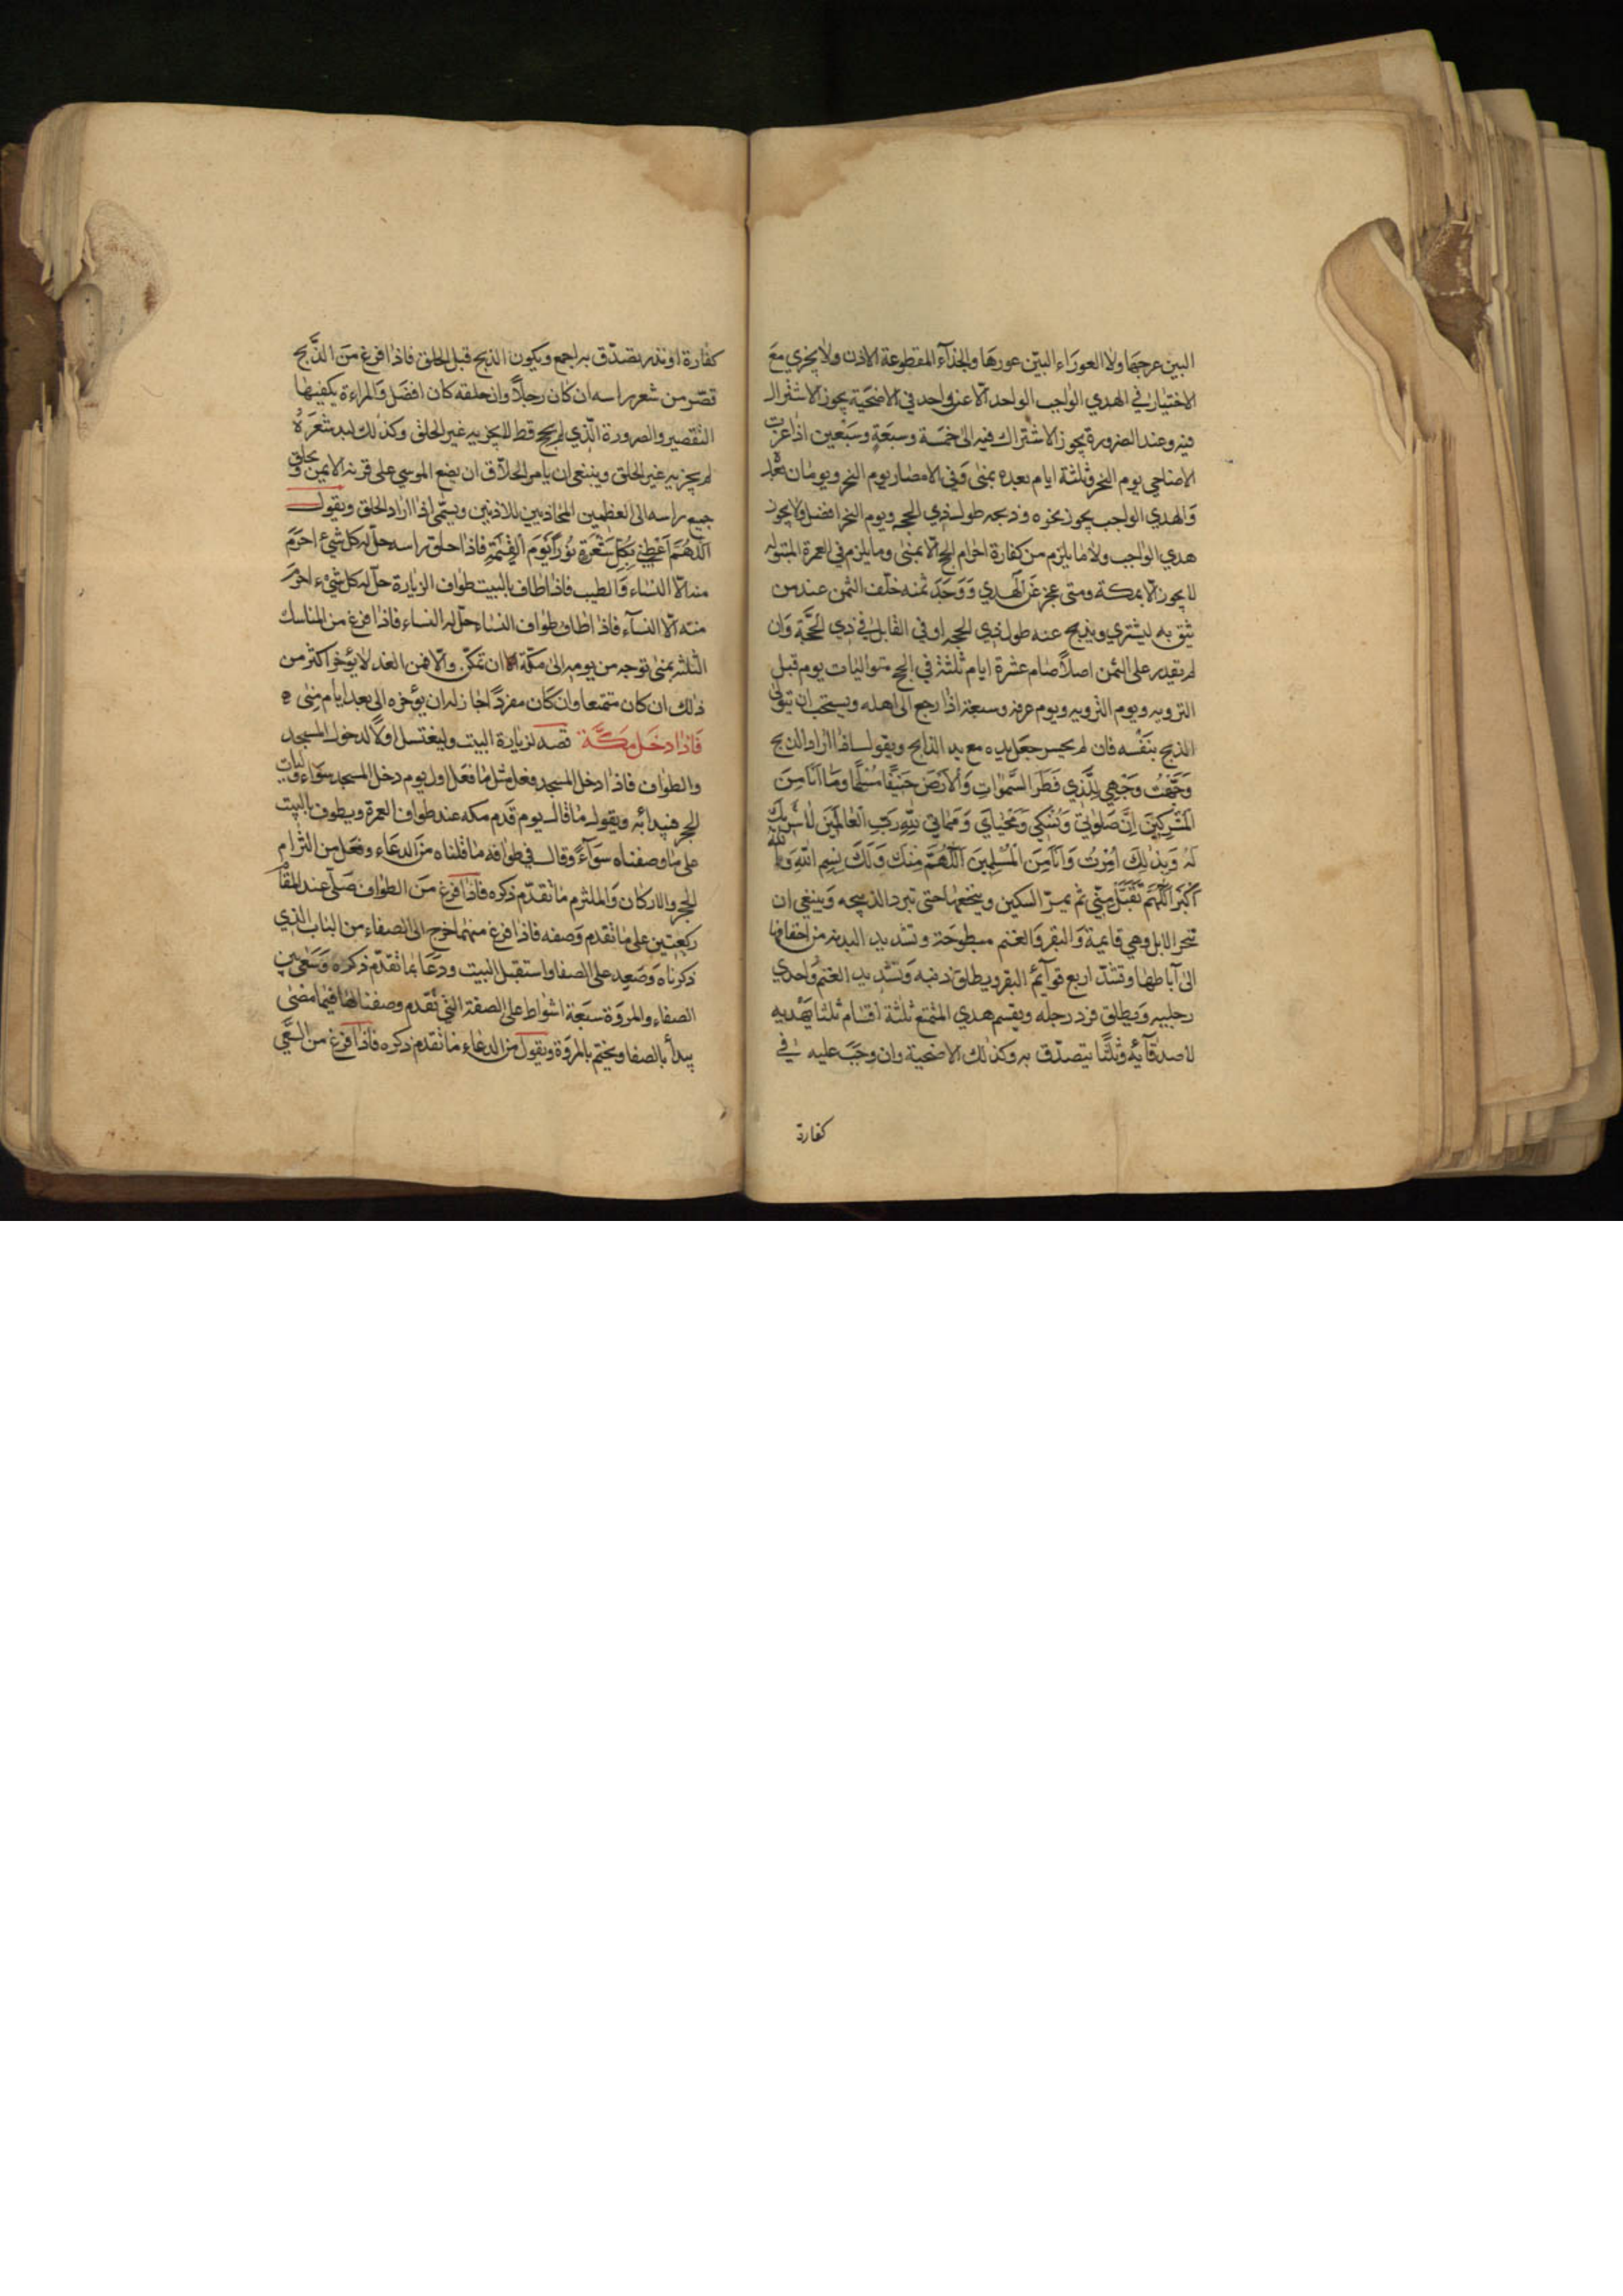 البين عرجها ولا العوراء البيّن عورها والجذآء المقطوعة الاذن ولا يجزي مَعَ
الاختيار في الهدي الواجب الواحد الّا عن واحد في الاضحية يجوز الاشتراك
فيه وعند الضرورة يجوز الاشتراك فيه الى خمسة وسبعَةٍ وسَبْعين اذا عزّت
الاضاحي يوم النحر وثلثة ايام بعده بمنى وَفي الامصار يوم النحر ويومان بعْد
وَالهدي الواجب يجوز نحره وذبحه طول ذي الحجه ويوم النحر افضل ولا يجوز
هدي الواجب ولا ما يلزم من كفارة احرام الحج الّا بمنى وما يلزم في العمرة المبتوله
لا يجوز الّا بمكة ومتى عجز عَن الهَدي وَوَجَدَ ثمنه خلّف الثمن عند من
يثق به ليشتري ويذبح عنه طول ذي الحجه او في القابل في ذي الحَجَّة وَان
لم يقدر على الثمن اصلاً صام عشرة ايام ثلثة في الحج متواليات يوم قبل
الترويه ويوم الترويه ويوم عرفه وسبعة اذا رجع الى اهله ويستحب ان يتولى
الذبح بنَفْسه فان لم يحسن جعَل يده مع يد الذابح ويقول اذا اراد الذبح
وَجَّهْتُ وَجْهِي لِلَّذي فَطَرَ السَّمٰواتِ وَالْاَرْضَ حَنِيْفًا مُسْلِمًا وَمٰا اَنَا مِنَ
الْمُشْرِكِيْنَ اِنَّ صَلٰوتِيْ وَنُسُكِي وَمَحْيٰايَ وَمَمٰاتِي لِلّٰهِ رَبِّ الْعٰالَمِيْنَ لٰا شَرِيْكَ
لَهُ وَبِذٰلِكَ اُمِرْتُ وَاَنَا مِنَ الْمُسْلِمِيْنَ اَللّٰهُمَّ مِنْكَ وَلَكَ بِسْمِ اللّٰهِ وَاللّٰهُ
اَكْبَرُ اَللّٰهُمَّ تَقَبَّلْ مِنّي ثم يمرّ السكين وينخعها حتى تبرد الذبيحه وَينبغي ان
تنحر الابل وهي قايمة وَالبقر وَالغنم مبطوحَة وتشد يد البدنه من اخفافها
الى آباطها وتشدّ اربع قوآئم البقر ويطلق ذنبه وَتشد يد الغنم وَاحدي
رجليه وَيطلق فرد رجله ويقسم هدي المتمتع ثلٰثة اقسٰام ثلثا يهْديه
لاصدقآئه وثلثًا يتصدّق به وكذلك الاضحية وان وجَبَ عليه في
كفارة
كفارة او نذر تصدّق به اجمع ويكون الذبح قبل الحلق فاذا فرغ مَن الذَّبح
قصّر من شعر راسه ان كان رجلاً وان حلقه كان افضَل وَالمراءة يكفيها
التقصير والصرورة الّذي لم يحج قط لا يجزيه غير الحلق وكذلك ان لبد شعَرَهُ
لم يجزيه غير الحلق وينبغي ان يامر الحلاّق ان يضع الموسي على قرنه الايمن ويحلق
جميع راسه الى العظمين المحاذيين للاذنين ويسّمى اذا اراد الحلق ويقول
اَللّٰهُمَّ اَعْطِنِيْ بِكُلِّ شَعْرَةٍ نُوْراً يَوْمَ الْقِيٰمَةِ فاذا حلق راسه حلّ له كل شيْء احرَمَ
منه الّا النساء وَالطيب فاذا طاف بالبيت طواف الزيارة حلّ له كل شيْء احرَم
منه الّا النسآء فاذا طاف طواف النساء حلّ له النساء فاذا فرغ من المناسك
الثلثه بمنى توجه من يومه الى مكّة ان تمكّن والّا فمن الغد لا يؤخر اكثر من
ذلك ان كان متمتعا وان كان مفردًا جاز له ان يؤخره الى بعد ايام منٰى
فَاذا دخَل مَكَّة قصد لزيارة البيت وليغتسل اولاً لدخول المسجد
والطواف فاذا دخل المسجد فعل مثل ما فعَل اول يوم دخل المسجد سَواء وليات
الحجر فيبدأ به ويقول ما قال يوم قدَم مكه عند طواف العمرة ويطوف بالبيت
على ما وصفناه سَوآءً وقال في طوافه ما قلناه مَن الدعَاء وفعَل من التزام
الحجر والاركان وَالملتزم ما تقدّم ذكره فاذا فرغ مَن الطواف صَلّى عند المقام
ركعتين على ما تقدم وَصفه فاذا فرغ منهما خرج الى الصفاء من الباب الذي
ذكرناه وَصَعد على الصفا واستقبل البيت ودَعَا بما تقدّم ذكره وَسَعى بين
الصفاء والمروَة سبَعة اشواط على الصفة التي تقَدم وصفنا لها فيما مضى
يبدأ بالصفا ويختم بالمروَة ويقول من الدعاء ما تقدم ذكره فاذا فرغ من السَّعي